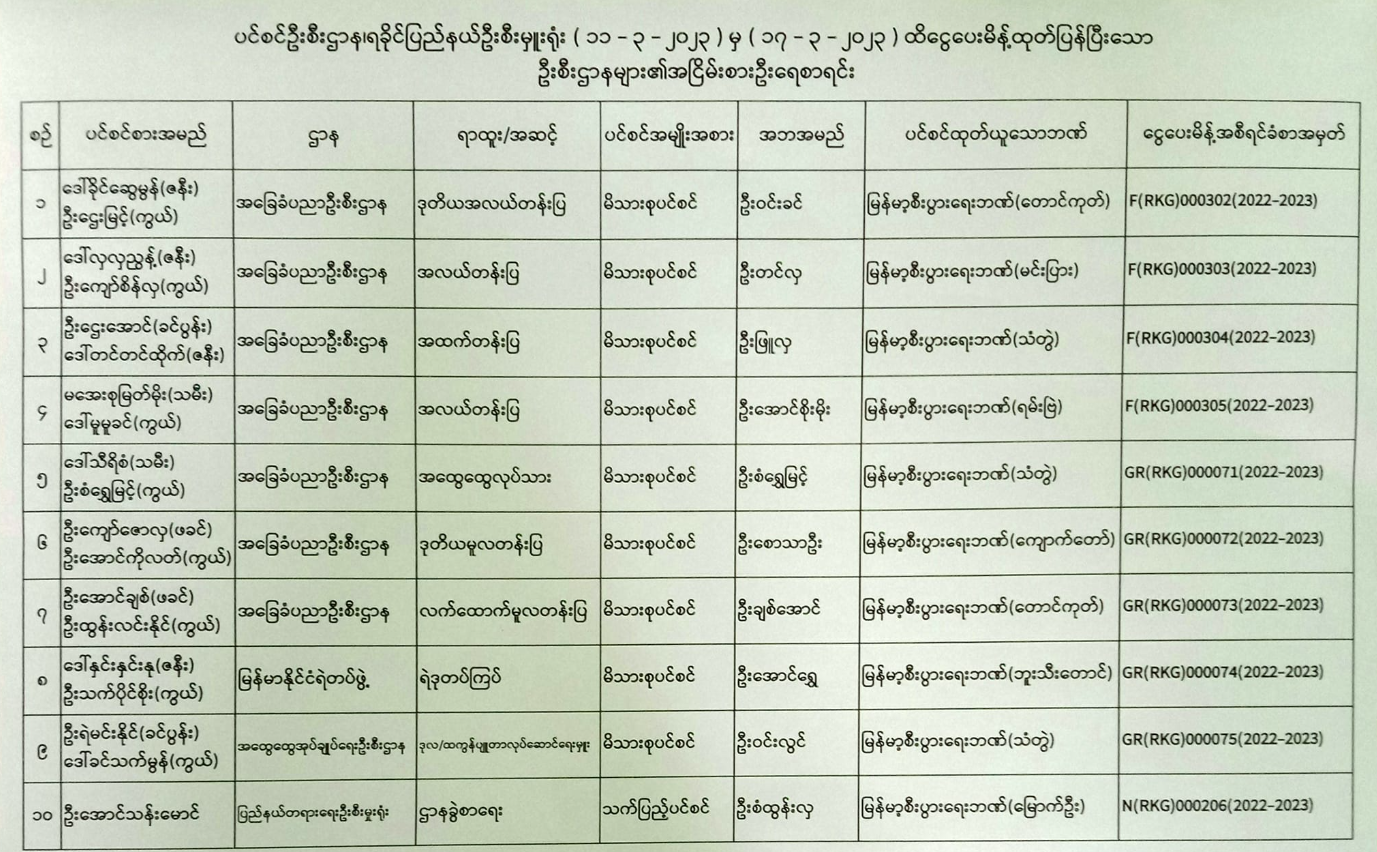 ပင်စင်ဦးစီးဌာန၊ရခိုင်ပြည်နယ်ဦးစီးမှူးရုံး ( ၁၁ – ၃ – ၂၀၂၃ ) မှ ( ၁၇ – ၃ – ၂၀၂၃ ) ထိငွေပေးမိန့်ထုတ်ပြန်ပြီးသော
ဦးစီးဌာနများ၏အငြိမ်းစားဦးရေစာရင်း
စဉ် ပင်စင်စားအမည် ဌာန ရာထူး/အဆင့် ပင်စင်အမျိုးအစား အဘအမည် ပင်စင်ထုတ်ယူသောဘဏ် ငွေပေးမိန့်အစီရင်ခံစာအမှတ်
ဒေါ်ခိုင်ဆွေမွန်(ဇနီး)
၁ ဦးဌေးမြင့်(ကွယ်) အခြေခံပညာဦးစီးဌာန ဒုတိယအလယ်တန်းပြ မိသားစုပင်စင် ဦးဝင်းခင် မြန်မာ့စီးပွားရေးဘဏ်(တောင်ကုတ်) F(RKG)000302(2022–2023)
ဒေါ်လှလှညွန့်(ဇနီး)
၂ ဦးကျော်စိန်လှ(ကွယ်) အခြေခံပညာဦးစီးဌာန အလယ်တန်းပြ မိသားစုပင်စင် ဦးတင်လှ မြန်မာ့စီးပွားရေးဘဏ်(မင်းပြား) F(RKG)000303(2022–2023)
ဦးဌေးအောင်(ခင်ပွန်း)
၃ ဒေါ်တင်တင်ထိုက်(ဇနီး) အခြေခံပညာဦးစီးဌာန အထက်တန်းပြ မိသားစုပင်စင် ဦးဖြူလှ မြန်မာ့စီးပွားရေးဘဏ်(သံတွဲ) F(RKG)000304(2022–2023)
မအေးစုမြတ်မိုး(သမီး)
၄ ဒေါ်မူမူခင်(ကွယ်) အခြေခံပညာဦးစီးဌာန အလယ်တန်းပြ မိသားစုပင်စင် ဦးအောင်စိုးမိုး မြန်မာ့စီးပွားရေးဘဏ်(ရမ်းဗြဲ) F(RKG)000305(2022–2023)
ဒေါ်သီရိစံ(သမီး)
၅ ဦးစံရွှေမြင့်(ကွယ်) အခြေခံပညာဦးစီးဌာန အထွေထွေလုပ်သား မိသားစုပင်စင် ဦးစံရွှေမြင့် မြန်မာ့စီးပွားရေးဘဏ်(သံတွဲ) GR(RKG)000071(2022–2023)
ဦးကျော်ဇောလှ(ဖခင်)
၆ ဦးအောင်ကိုလတ်(ကွယ်) အခြေခံပညာဦးစီးဌာန ဒုတိယမူလတန်းပြ မိသားစုပင်စင် ဦးစောသာဦး မြန်မာ့စီးပွားရေးဘဏ်(ကျောက်တော်) GR(RKG)000072(2022–2023)
ဦးအောင်ချစ်(ဖခင်)
၇ ဦးထွန်းလင်းနိုင်(ကွယ်) အခြေခံပညာဦးစီးဌာန လက်ထောက်မူလတန်းပြ မိသားစုပင်စင် ဦးချစ်အောင် မြန်မာ့စီးပွားရေးဘဏ်(တောင်ကုတ်) GR(RKG)000073(2022–2023)
ဒေါ်နှင်းနှင်းနု(ဇနီး)
၈ ဦးသက်ပိုင်စိုး(ကွယ်) မြန်မာနိုင်ငံရဲတပ်ဖွဲ့ ရဲဒုတပ်ကြပ် မိသားစုပင်စင် ဦးအောင်ရွှေ မြန်မာ့စီးပွားရေးဘဏ်(ဘူးသီးတောင်) GR(RKG)000074(2022–2023)
ဦးရဲမင်းနိုင်(ခင်ပွန်း)
၉ ဒေါ်ခင်သက်မွန်(ကွယ်) အထွေထွေအုပ်ချုပ်ရေးဦးစီးဌာန ဒုလ/ထကွန်ပျူတာလုပ်ဆောင်ရေးမှူး မိသားစုပင်စင် ဦးဝင်းလွင် မြန်မာ့စီးပွားရေးဘဏ်(သံတွဲ) GR(RKG)000075(2022–2023)
၁၀ ဦးအောင်သန်းမောင် ပြည်နယ်တရားရေးဦးစီးမှူးရုံး ဌာနခွဲစာရေး သက်ပြည့်ပင်စင် ဦးစံထွန်းလှ မြန်မာ့စီးပွားရေးဘဏ်(မြောက်ဦး) N(RKG)000206(2022–2023)